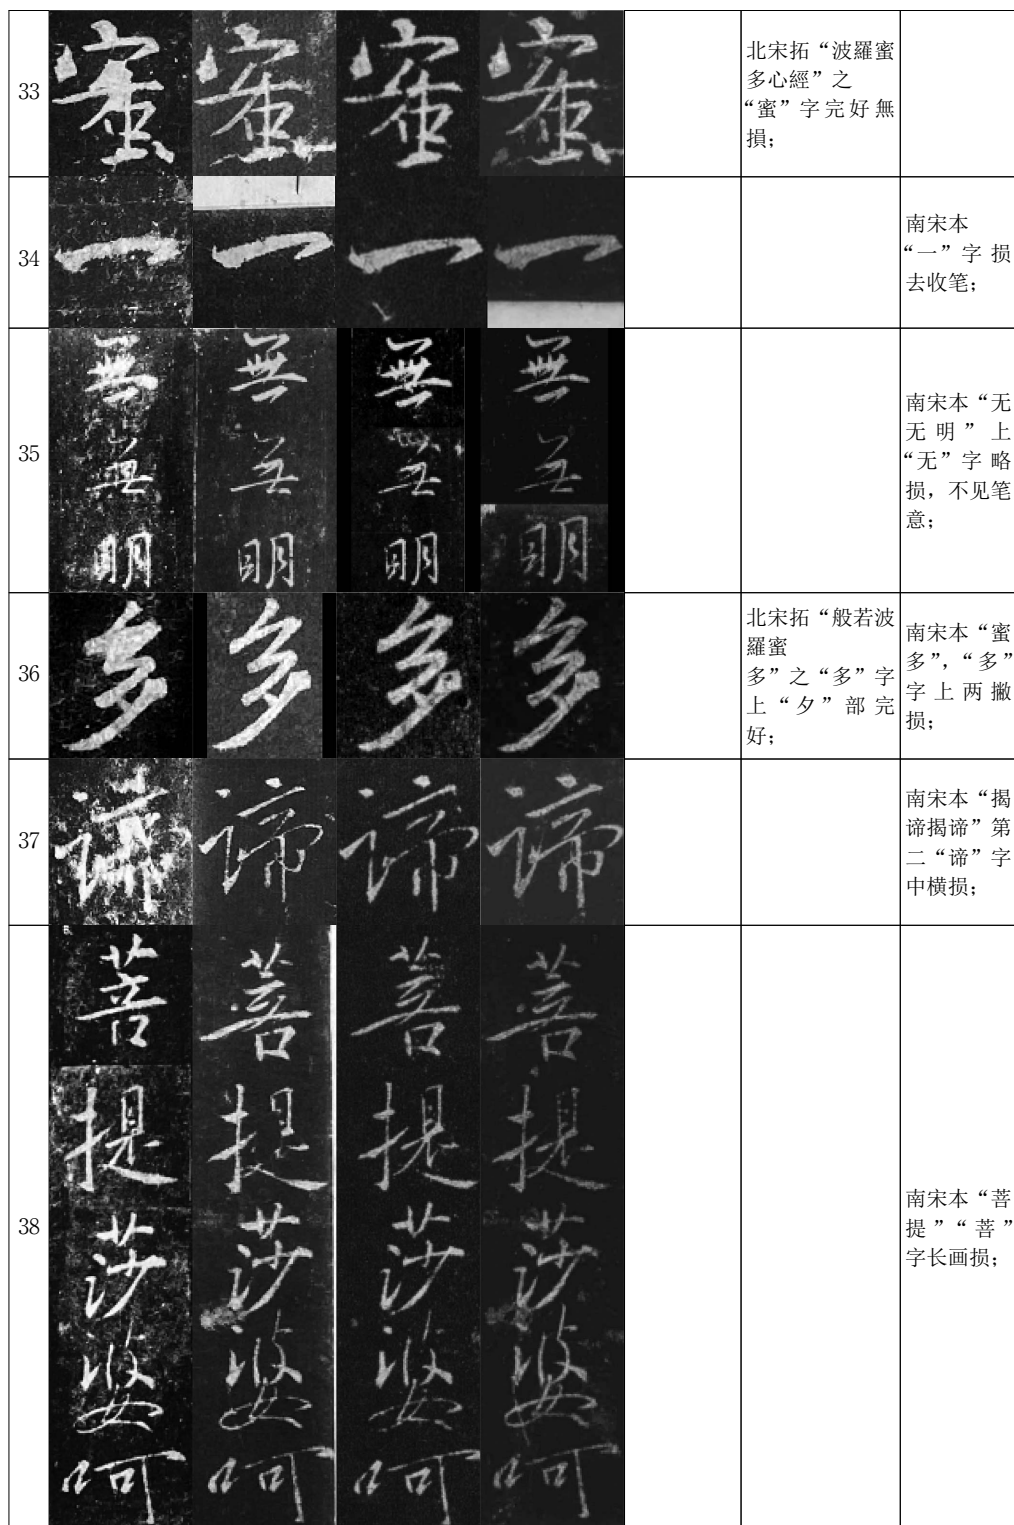 33
蜜
蜜
蜜
蜜
北宋拓“波羅蜜
多心經”之
“蜜”字完好無
損；
34
一
一
一
一
南宋本
“一”字损
去收笔；
35
無
無
明
無
無
明
無
無
明
無
無
明
南宋本“无
无明”上
“无”字略
损，不见笔
意；
36
多
多
多
多
北宋拓“般若波
羅蜜
多”之“多”字
上“夕”部完
好；
南宋本“蜜
多”，“多”
字上两撇
损；
37
谛
谛
谛
谛
南宋本“揭
谛揭谛”第
二“谛”字
中横损；
38
菩
提
莎
婆
呵
菩
提
莎
婆
呵
菩
提
莎
婆
呵
菩
提
莎
婆
呵
南宋本“菩
提”“菩”
字长画损；